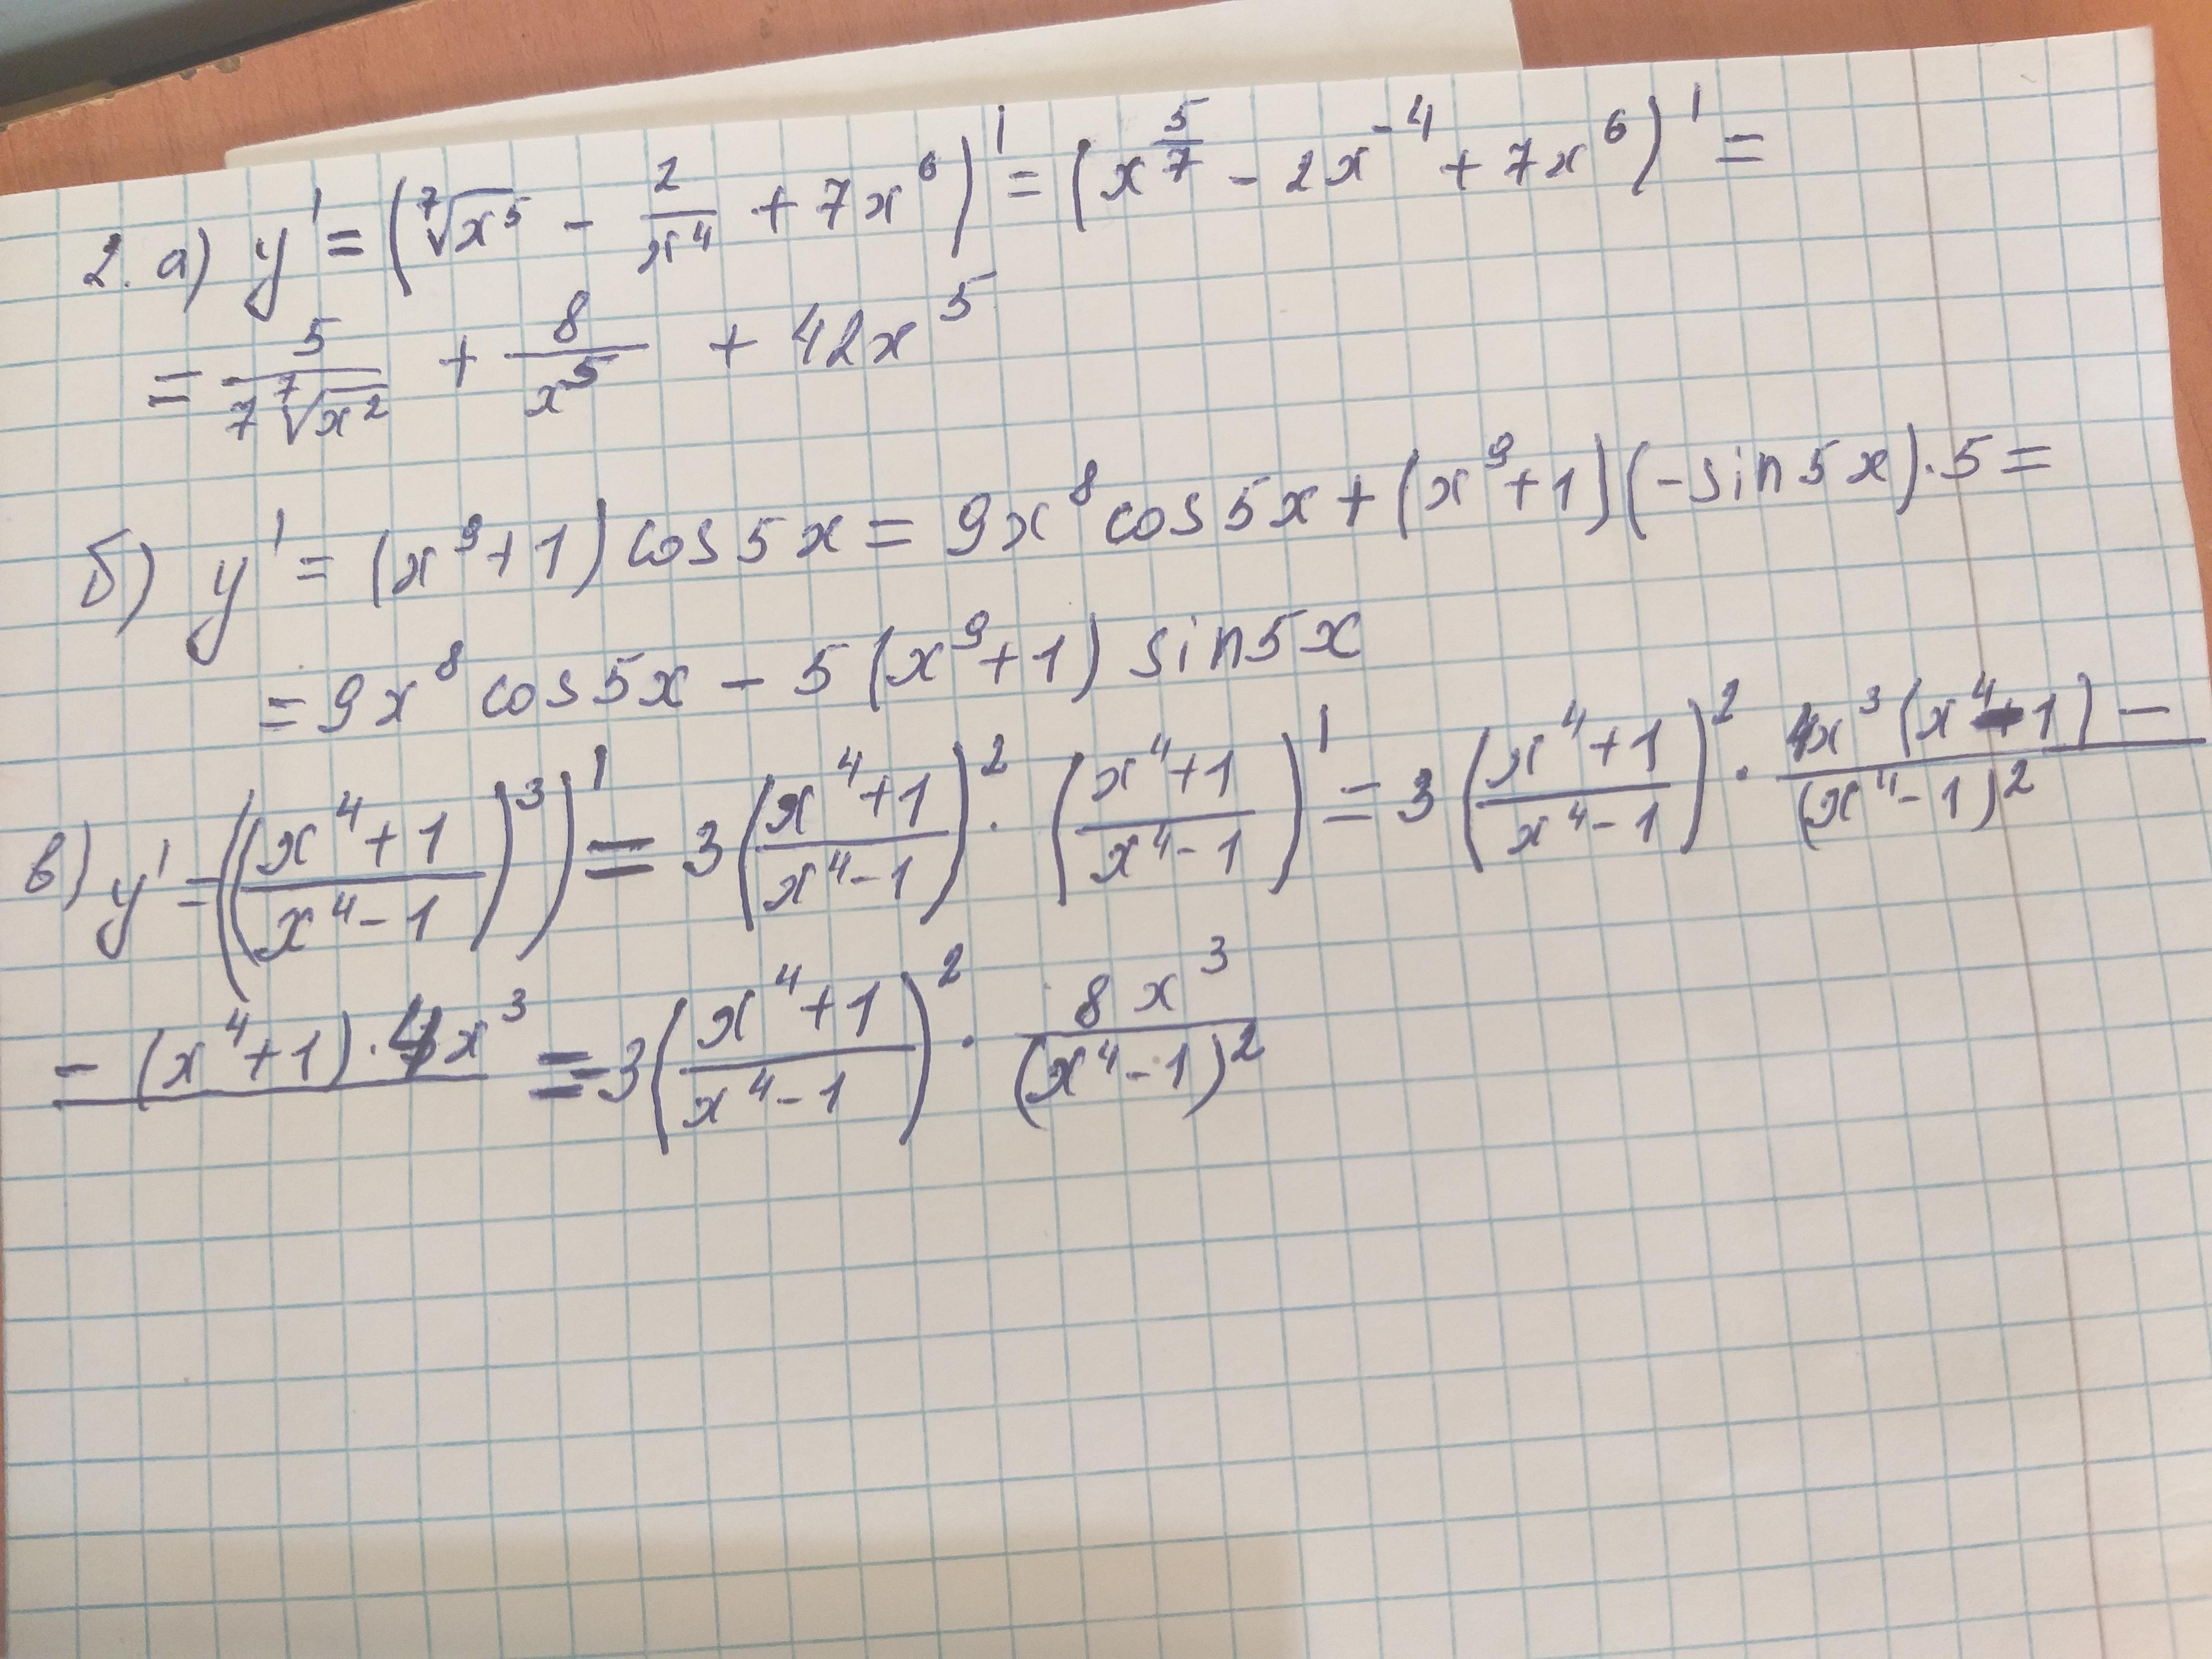 2. а) y' = (⁷√x⁵ − 2/x⁴ + 7x⁶)' = (x^(5/7) − 2x⁻⁴ + 7x⁶)' =
= 5/(7 ⁷√x²) + 8/x⁵ + 42x⁵
б) y' = (x⁹+1) cos 5x = 9x⁸ cos 5x + (x⁹+1)(−sin 5x)·5 =
= 9x⁸ cos 5x − 5 (x⁹+1) sin 5x
в) y' = (((x⁴+1)/(x⁴−1))³)' = 3((x⁴+1)/(x⁴−1))² · ((x⁴+1)/(x⁴−1))' = 3((x⁴+1)/(x⁴−1))² · (4x³(x⁴−1) −)/(x⁴−1)²
− (x⁴+1)·4x³ = −3((x⁴+1)/(x⁴−1))² · 8x³/(x⁴−1)²